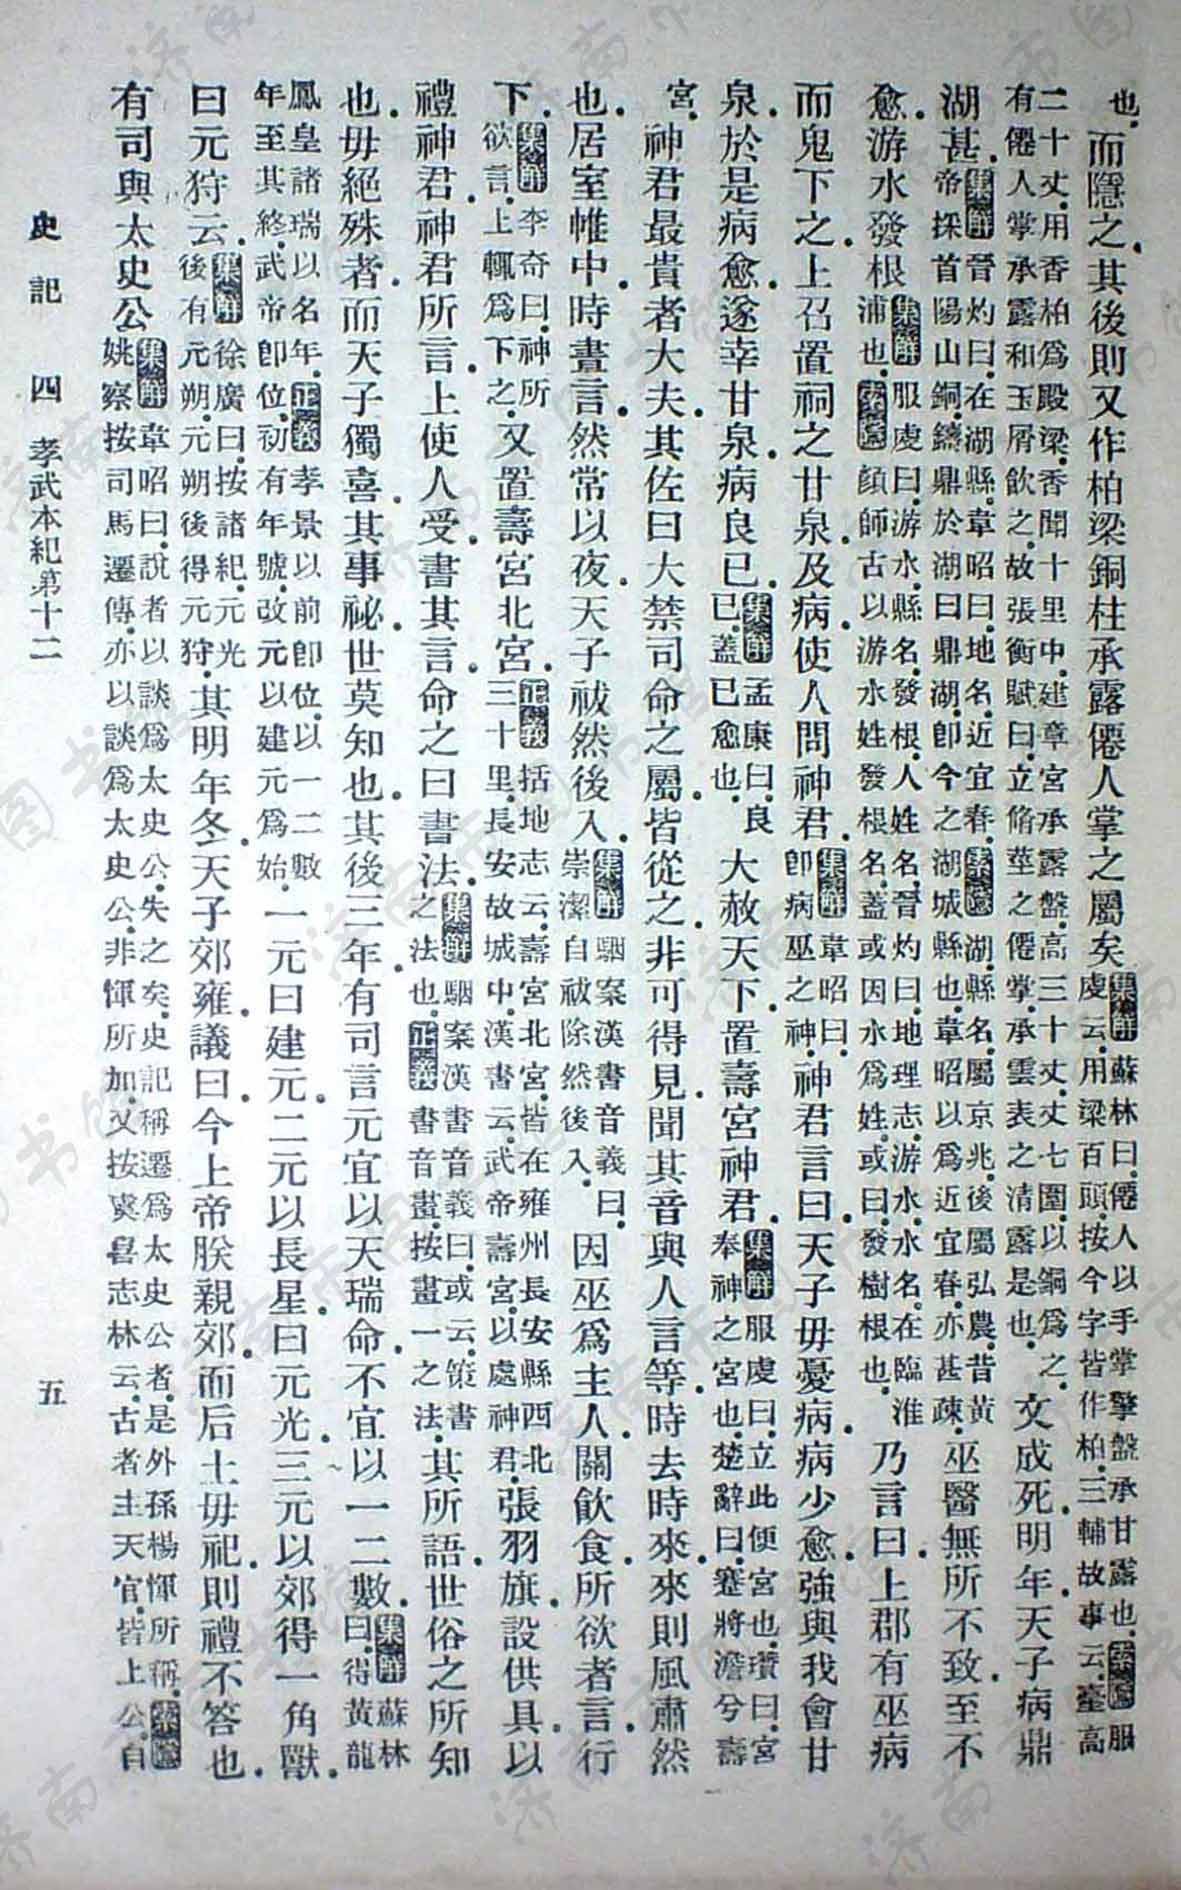 也。而隱之。其後則又作柏梁銅柱承露僊人掌之屬矣。集解蘇林曰。僊人以手掌擎盤承甘露也。索隱服虔云。用梁百頭。按今字皆作柏。三輔故事云。臺高
二十丈。用香柏爲殿梁。香聞十里中。建章宮承露盤。高三十丈。丈七圍。以銅爲之。有僊人掌承露。和玉屑飲之。故張衡賦曰。立脩莖之僊掌。承雲表之清露是也。文成死。明年。天子病鼎
湖甚。集解晉灼曰。在湖縣。韋昭曰。地名。近宜春。索隱湖。縣名。屬京兆。後屬弘農。昔黃帝採首陽山銅。鑄鼎於湖。曰鼎湖。卽今之湖城縣也。韋昭以爲近宜春。亦甚疎。巫醫無所不致。至不
愈。游水發根集解服虔曰。游水。縣名。發根。人姓名。晉灼曰。地理志。游水。水名。在臨淮浦也。索隱顔師古以游水姓。發根名。蓋或因水爲姓。或曰。發樹根也。乃言曰。上郡有巫。病
而鬼下之。上召置祠之甘泉。及病。使人問神君。集解韋昭曰。卽病巫之神。神君言曰。天子毋憂病。病少愈。強與我會甘
泉。於是病愈。遂幸甘泉。病良已。集解孟康曰。良已。蓋已愈也。大赦天下。置壽宮神君。集解服虔曰。立此便宮也。瓚曰。宮奉神之宮也。楚辭曰。蹇將澹兮壽
宮。神君最貴者大夫。其佐曰大禁司命之屬。皆從之。非可得見。聞其音。與人言等。時去時來。來則風肅然
也。居室帷中。時晝言。然常以夜。天子祓。然後入。集解駰案漢書音義曰。崇潔自祓除然後入。因巫爲主人。關飲食。所欲者言。行
下。集解李奇曰。神所欲言。上輒爲下之。又置壽宮北宮。正義括地志云。壽宮北宮。皆在雍州長安縣西北三十里。長安故城中。漢書云。武帝壽宮。以處神君。張羽旗。設供具。以
禮神君。神君所言。上使人受書其言。命之曰書法。集解駰案漢書音義曰。或云。策書之法也。正義書音畫。按畫一之法。其所語。世俗之所知
也。毋絕殊者。而天子獨喜。其事祕。世莫知也。其後三年。有司言元宜以天瑞命。不宜以一二數。集解蘇林曰。得黃龍
鳳皇諸瑞。以名年。正義孝景以前卽位。以一二數年至其終。武帝卽位。初有年號。改元以建元爲始。一元曰建元。二元以長星。曰元光。三元以郊得一角獸。
曰元狩云。集解徐廣曰。按諸紀。元光後有元朔。元朔後得元狩。其明年冬。天子郊雍。議曰。今上帝朕親郊。而后土毋祀。則禮不答也。
有司與太史公集解韋昭曰。說者以談爲太史公。失之矣。史記稱遷爲太史公者。是外孫楊惲所稱。索隱姚察按司馬遷傳。亦以談爲太史公。非惲所加。又按虞喜志林云。古者主天官。皆上公。自
史記 四 孝武本紀第十二 五